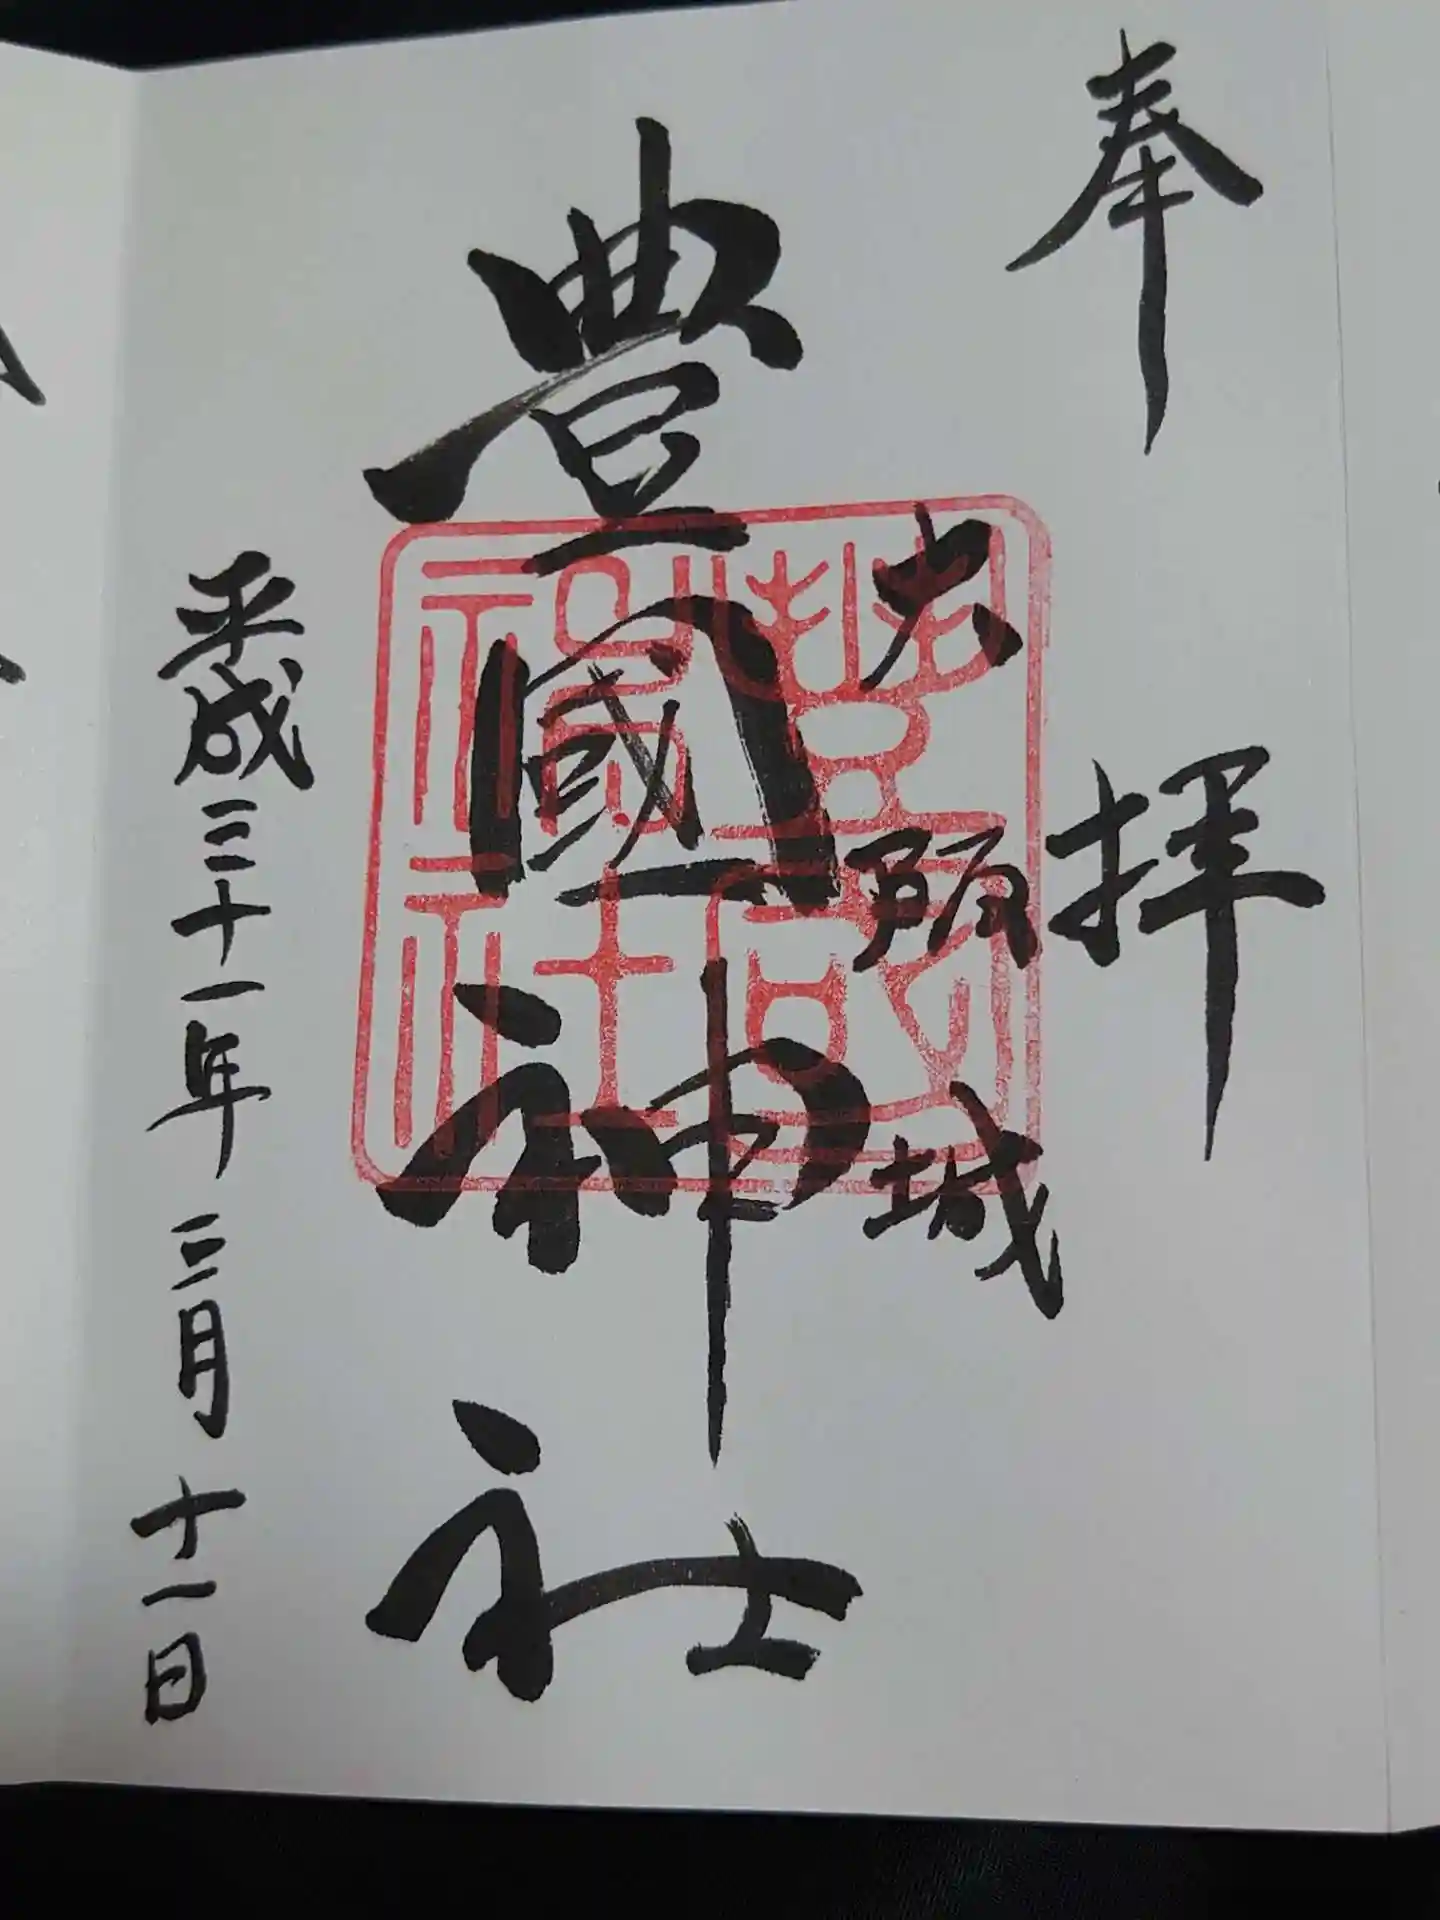 奉拝
大阪城
豊國神社
平成三十一年三月十一日
豊國神社